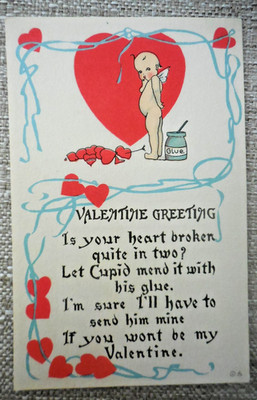 Glue
VALENTINE GREETING
Is your heart broken
quite in two?
Let Cupid mend it with
his glue.
I'm sure I'll have to
send him mine
If you wont be my
Valentine.